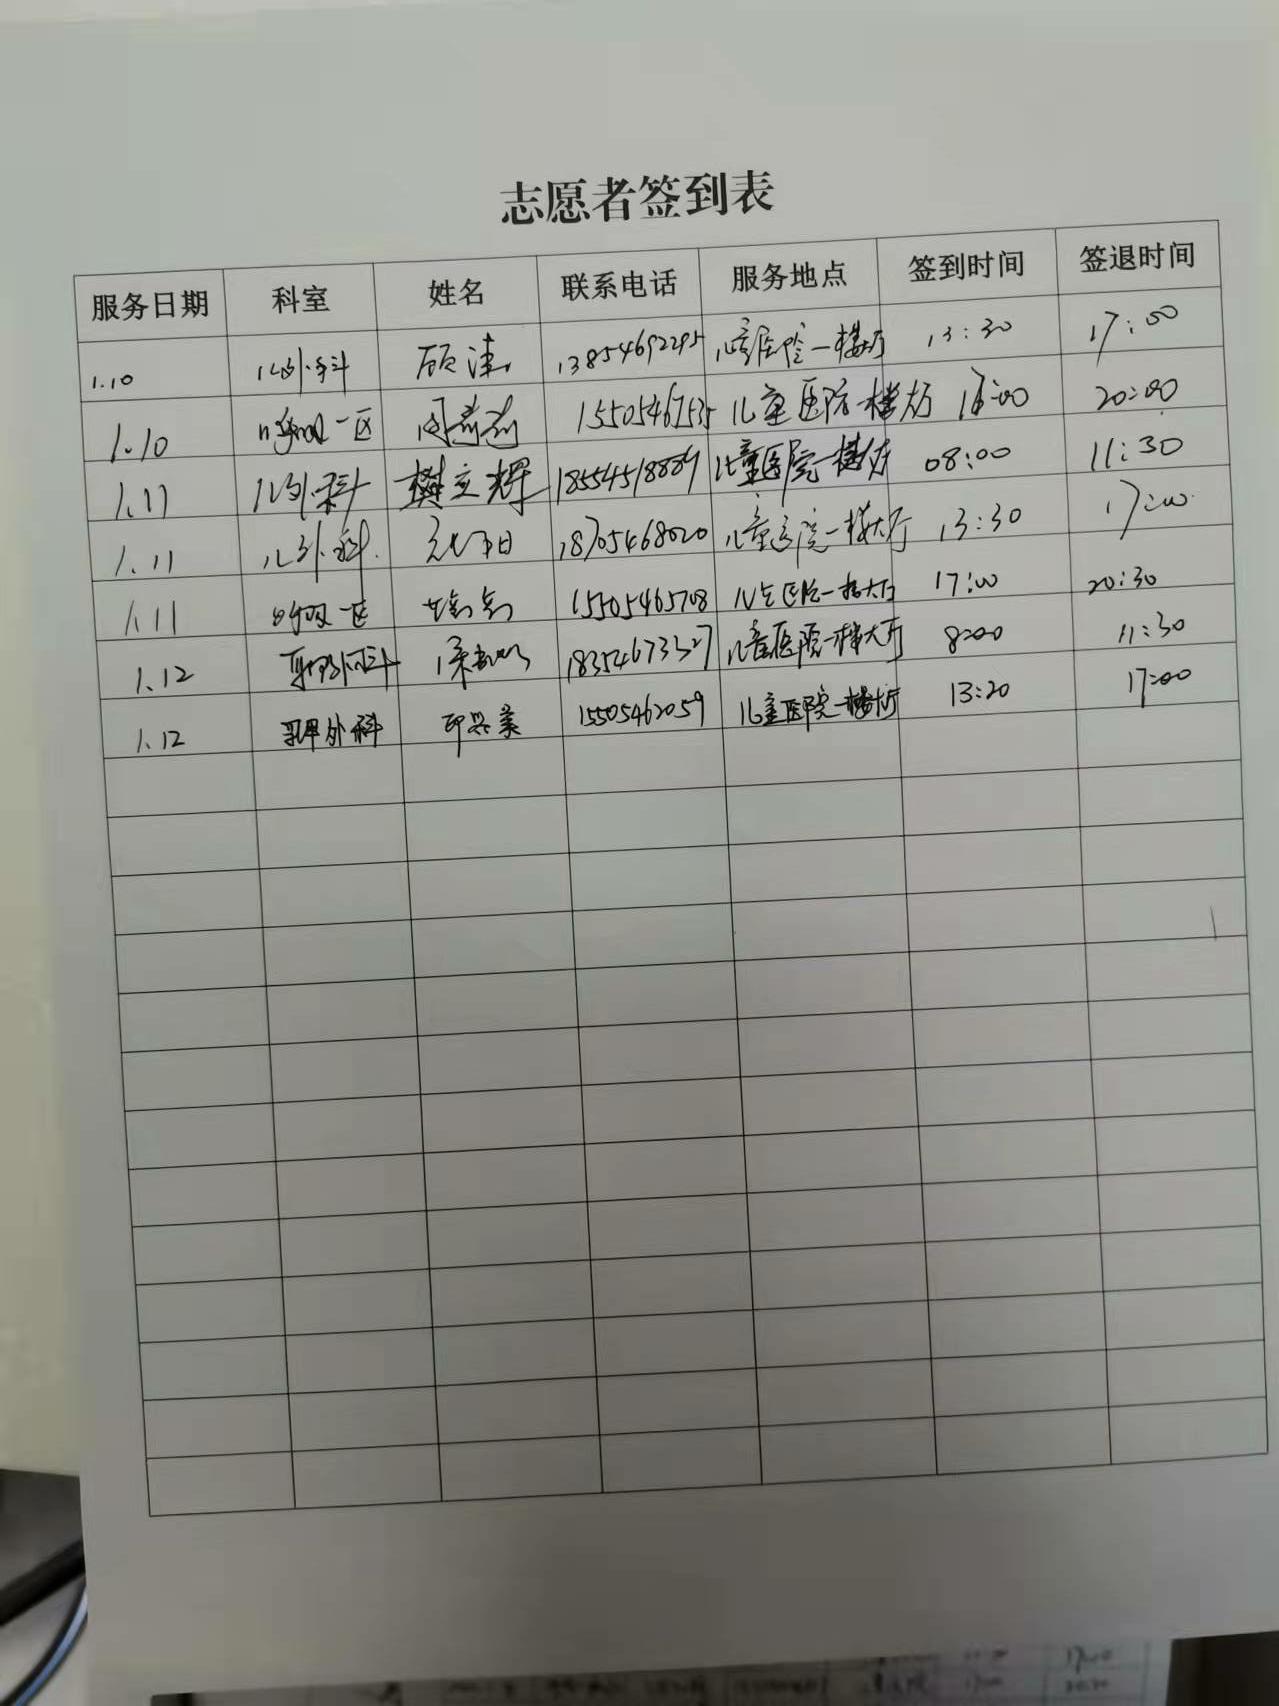 志愿者签到表
服务日期 科室 姓名 联系电话 服务地点 签到时间 签退时间
1.10 儿外科 13854692295 儿童医院一楼大厅 13:30 17:00
1.10 呼吸一区 儿童医院一楼大厅 17:00 20:00
1.11 儿外科 樊立辉 18554518889 儿童医院一楼大厅 08:00 11:30
1.11 儿外科 18705468020 儿童医院一楼大厅 13:30 17:00
1.11 呼吸一区 15505465708 儿童医院一楼大厅 17:00 20:30
1.12 18354673527 儿童医院一楼大厅 8:00 11:30
1.12 乳甲外科 15505462059 儿童医院一楼大厅 13:20 17:00